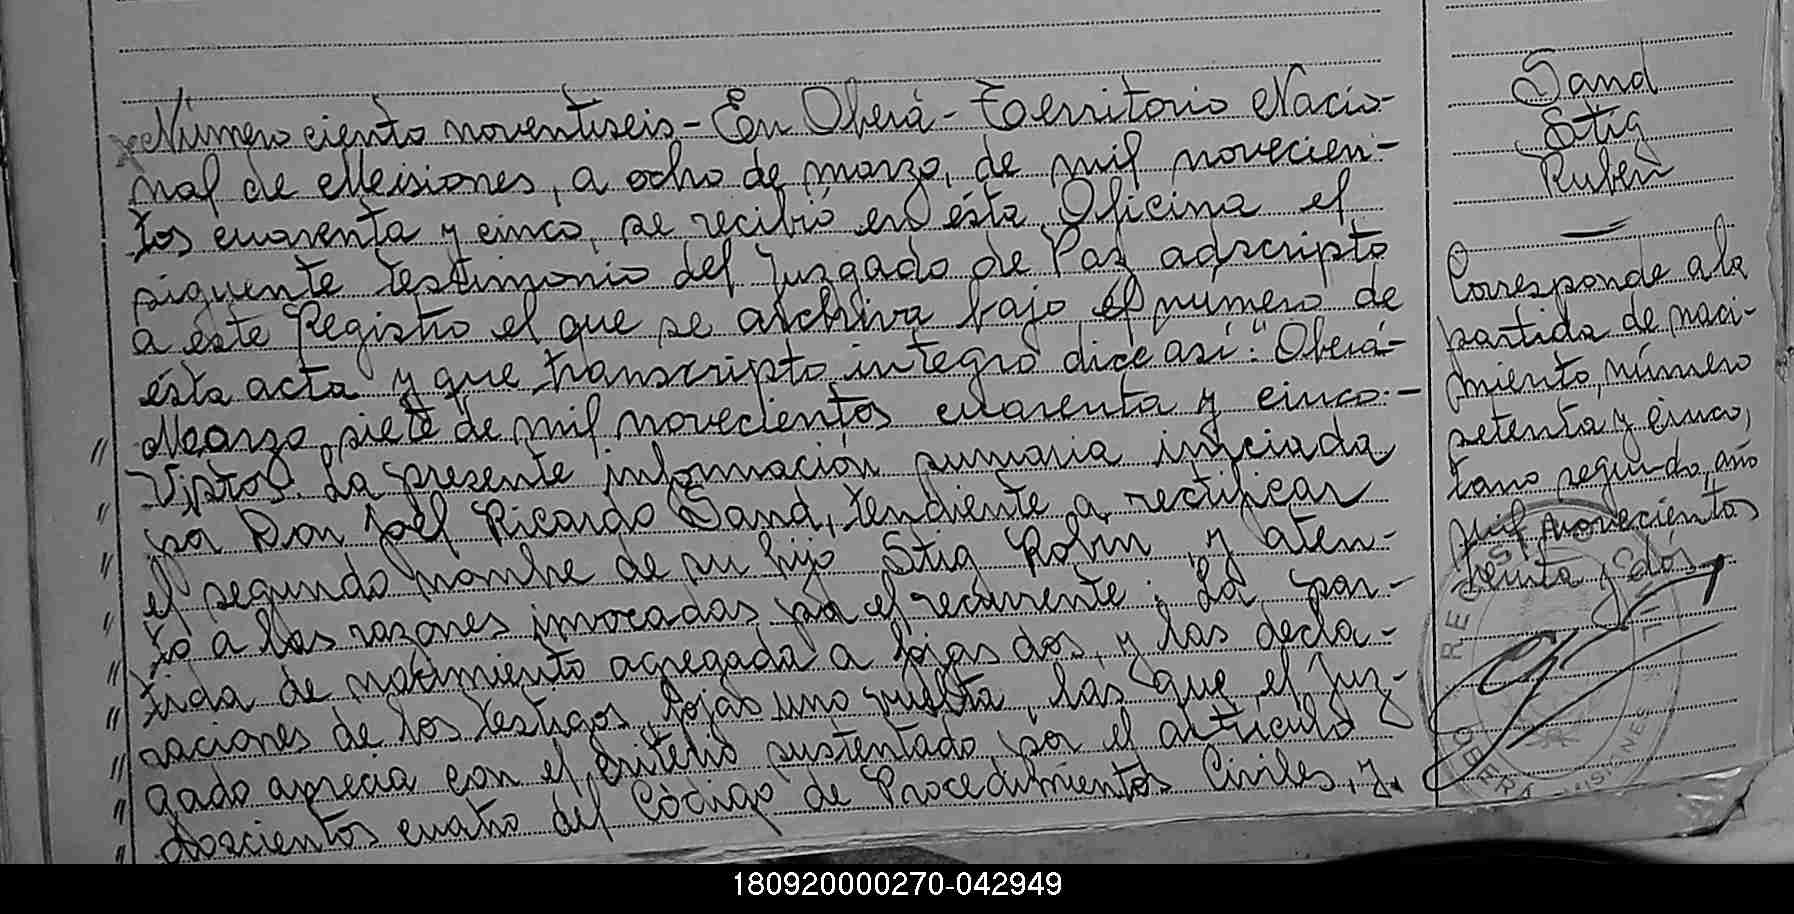 Número ciento noventiseis - En Oberá - Territorio Nacio-
nal de Meisiones, a ocho de marzo, de mil novecien-
tos cuarenta y cinco, se recibió en ésta Oficina el
siguente testimonio del Juzgado de Paz adscripto
a este Registro el que se archiva bajo el numero de
ésta acta y que transcripto integro dice así: "Oberá-
Mearzo siete de mil novecientos cuarenta y cinco.-
Vistos. La presente información sumaria iniciada
por Don Joel Ricardo Sand, tendiente a rectificar
el segundo nombre de su hijo Stig Robin, y aten-
to a las razones invocadas por el recurrente; La par-
tida de nacimiento agregada a fojas dos, y las decla-
raciones de los testigos, fojas uno vuelta, las que el Juz-
gado aprecia con el criterio sustentado por el artículo
doscientos cuatro del Código de Procedimientos Civiles, y.
Sand
Stig
Rubén
Corresponde a la
partida de naci-
miento, número
setenta y cinco,
tomo segundo, año
mil novecientos
treinta y dós
REGIS
OBERA MISIONES
180920000270-042949